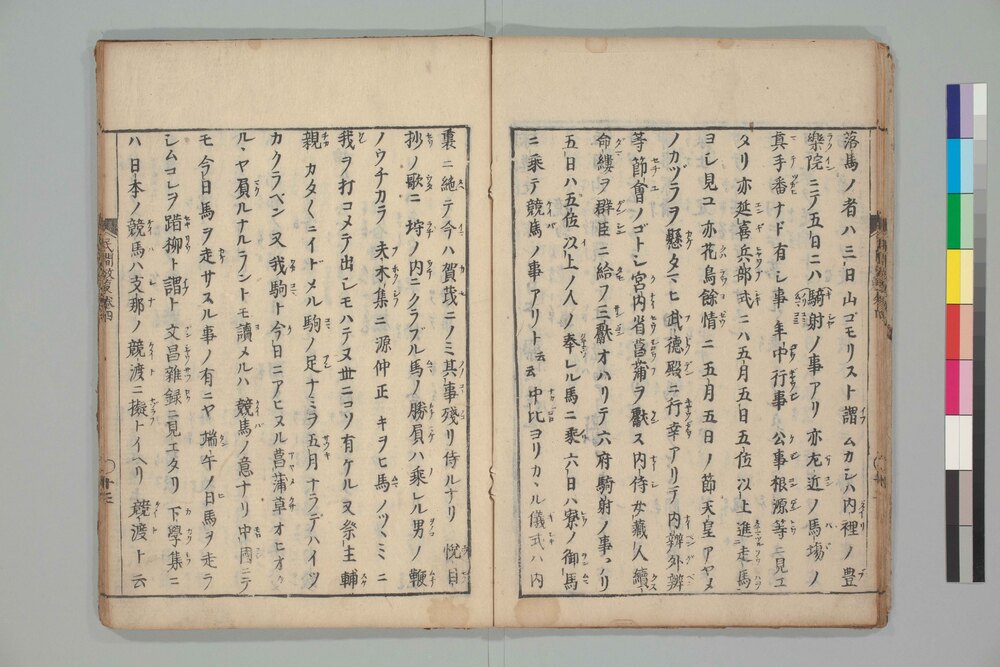 落馬ノ者ハ三日山ゴモリスト謂ムカシハ内裡ノ豊
樂院ニテ五日ニハ騎射ノ事アリ亦左近ノ馬塲ノ
真手番ナド有シ事年中行事公事根源等ニ見エ
タリ亦延喜兵部式ニハ五月五日五位以上進走馬
ヨシ見ユ亦花鳥餘情ニ五月五日ノ節天皇アヤメ
ノカヅラヲ懸タマヒ武德殿ニ行幸アリテ内辨外辨
等節會ノゴトシ宮内省菖蒲ヲ獻ス内侍女藏人續
命縷ヲ群臣ニ給フ三獻オハリテ六府騎射ノ事アリ
五日ハ五位以上ノ人ノ奉レル馬ニ乘六日ハ寮ノ御馬
ニ乘テ競馬ノ事アリト云云中比ヨリカヽル儀式ハ内
裏ニ絁テ今ハ賀茂ニノミ其事殘リ侍ルナリ 悅目
抄ノ歌ニ 埒ノ内ニクラブル馬ノ勝負ハ乘レル男ノ鞭
ノウチカラ 夫木集ニ源仲正 キヲヒ馬ノツヽミニ
我ヲ打コメテ出シモハテヌ世ニコソ有ケルヌ祭主輔
親 カタ〳〵ニイドメル駒ノ足ナミヲ五月ナラデハイツ
カクラベン又我駒ト今日ニアヒヌル菖蒲草オヒオク
ル﹅ヤ負ルナルラントモ讀メルハ競馬ノ意ナリ中國ニテ
モ今日馬ヲ走サスル事ノ有ニヤ端午ノ日馬ヲ走ラ
シムコレヲ踏柳ト謂ト文昌雜録ニ見エタリ下學集ニ
ハ日本ノ競馬ハ支那ノ競渡ニ擬トイヘリ 競渡ト云